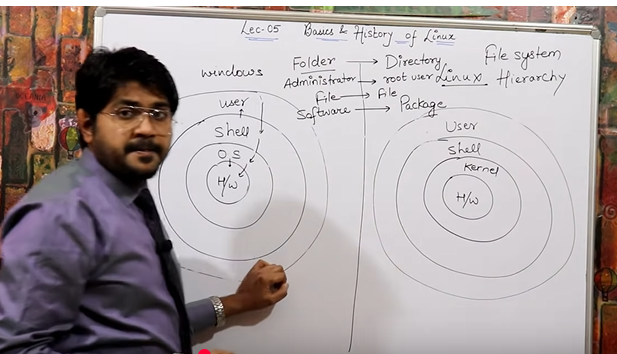 Lec-05 Basics & History of Linux
windows
Folder → Directory
Administrator → root user
File → File
Software → Package
File system
Linux Hierarchy
user
Shell
OS
H/w
User
Shell
Kernel
H/w